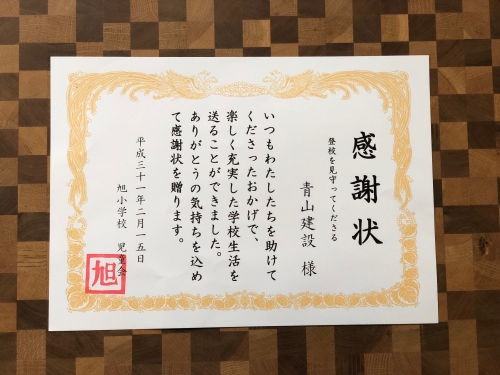 感謝状
登校を見守ってくださる
青山建設 様
いつもわたしたちを助けて
くださったおかげで、
楽しく充実した学校生活を
送ることができました。
ありがとうの気持ちを込め
て感謝状を贈ります。
平成三十一年二月一五日
旭小学校 児童会
旭